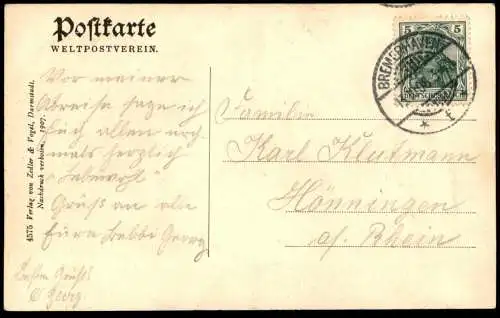 Postkarte
WELTPOSTVEREIN.
5 5
DEUTSCHES REICH
BREMERHAVEN
* f
Vor meiner
Abreise sage ich
Euch allen noch
mals herzlich
"Lebewohl"
Gruss an alle
Eure Georg
Besten Gruss
Georg
Familie
Karl Klutmann
Hönningen
a/. Rhein
4575 Verlag von Zedler & Vogel, Darmstadt.
Nachdruck verboten. 1907.